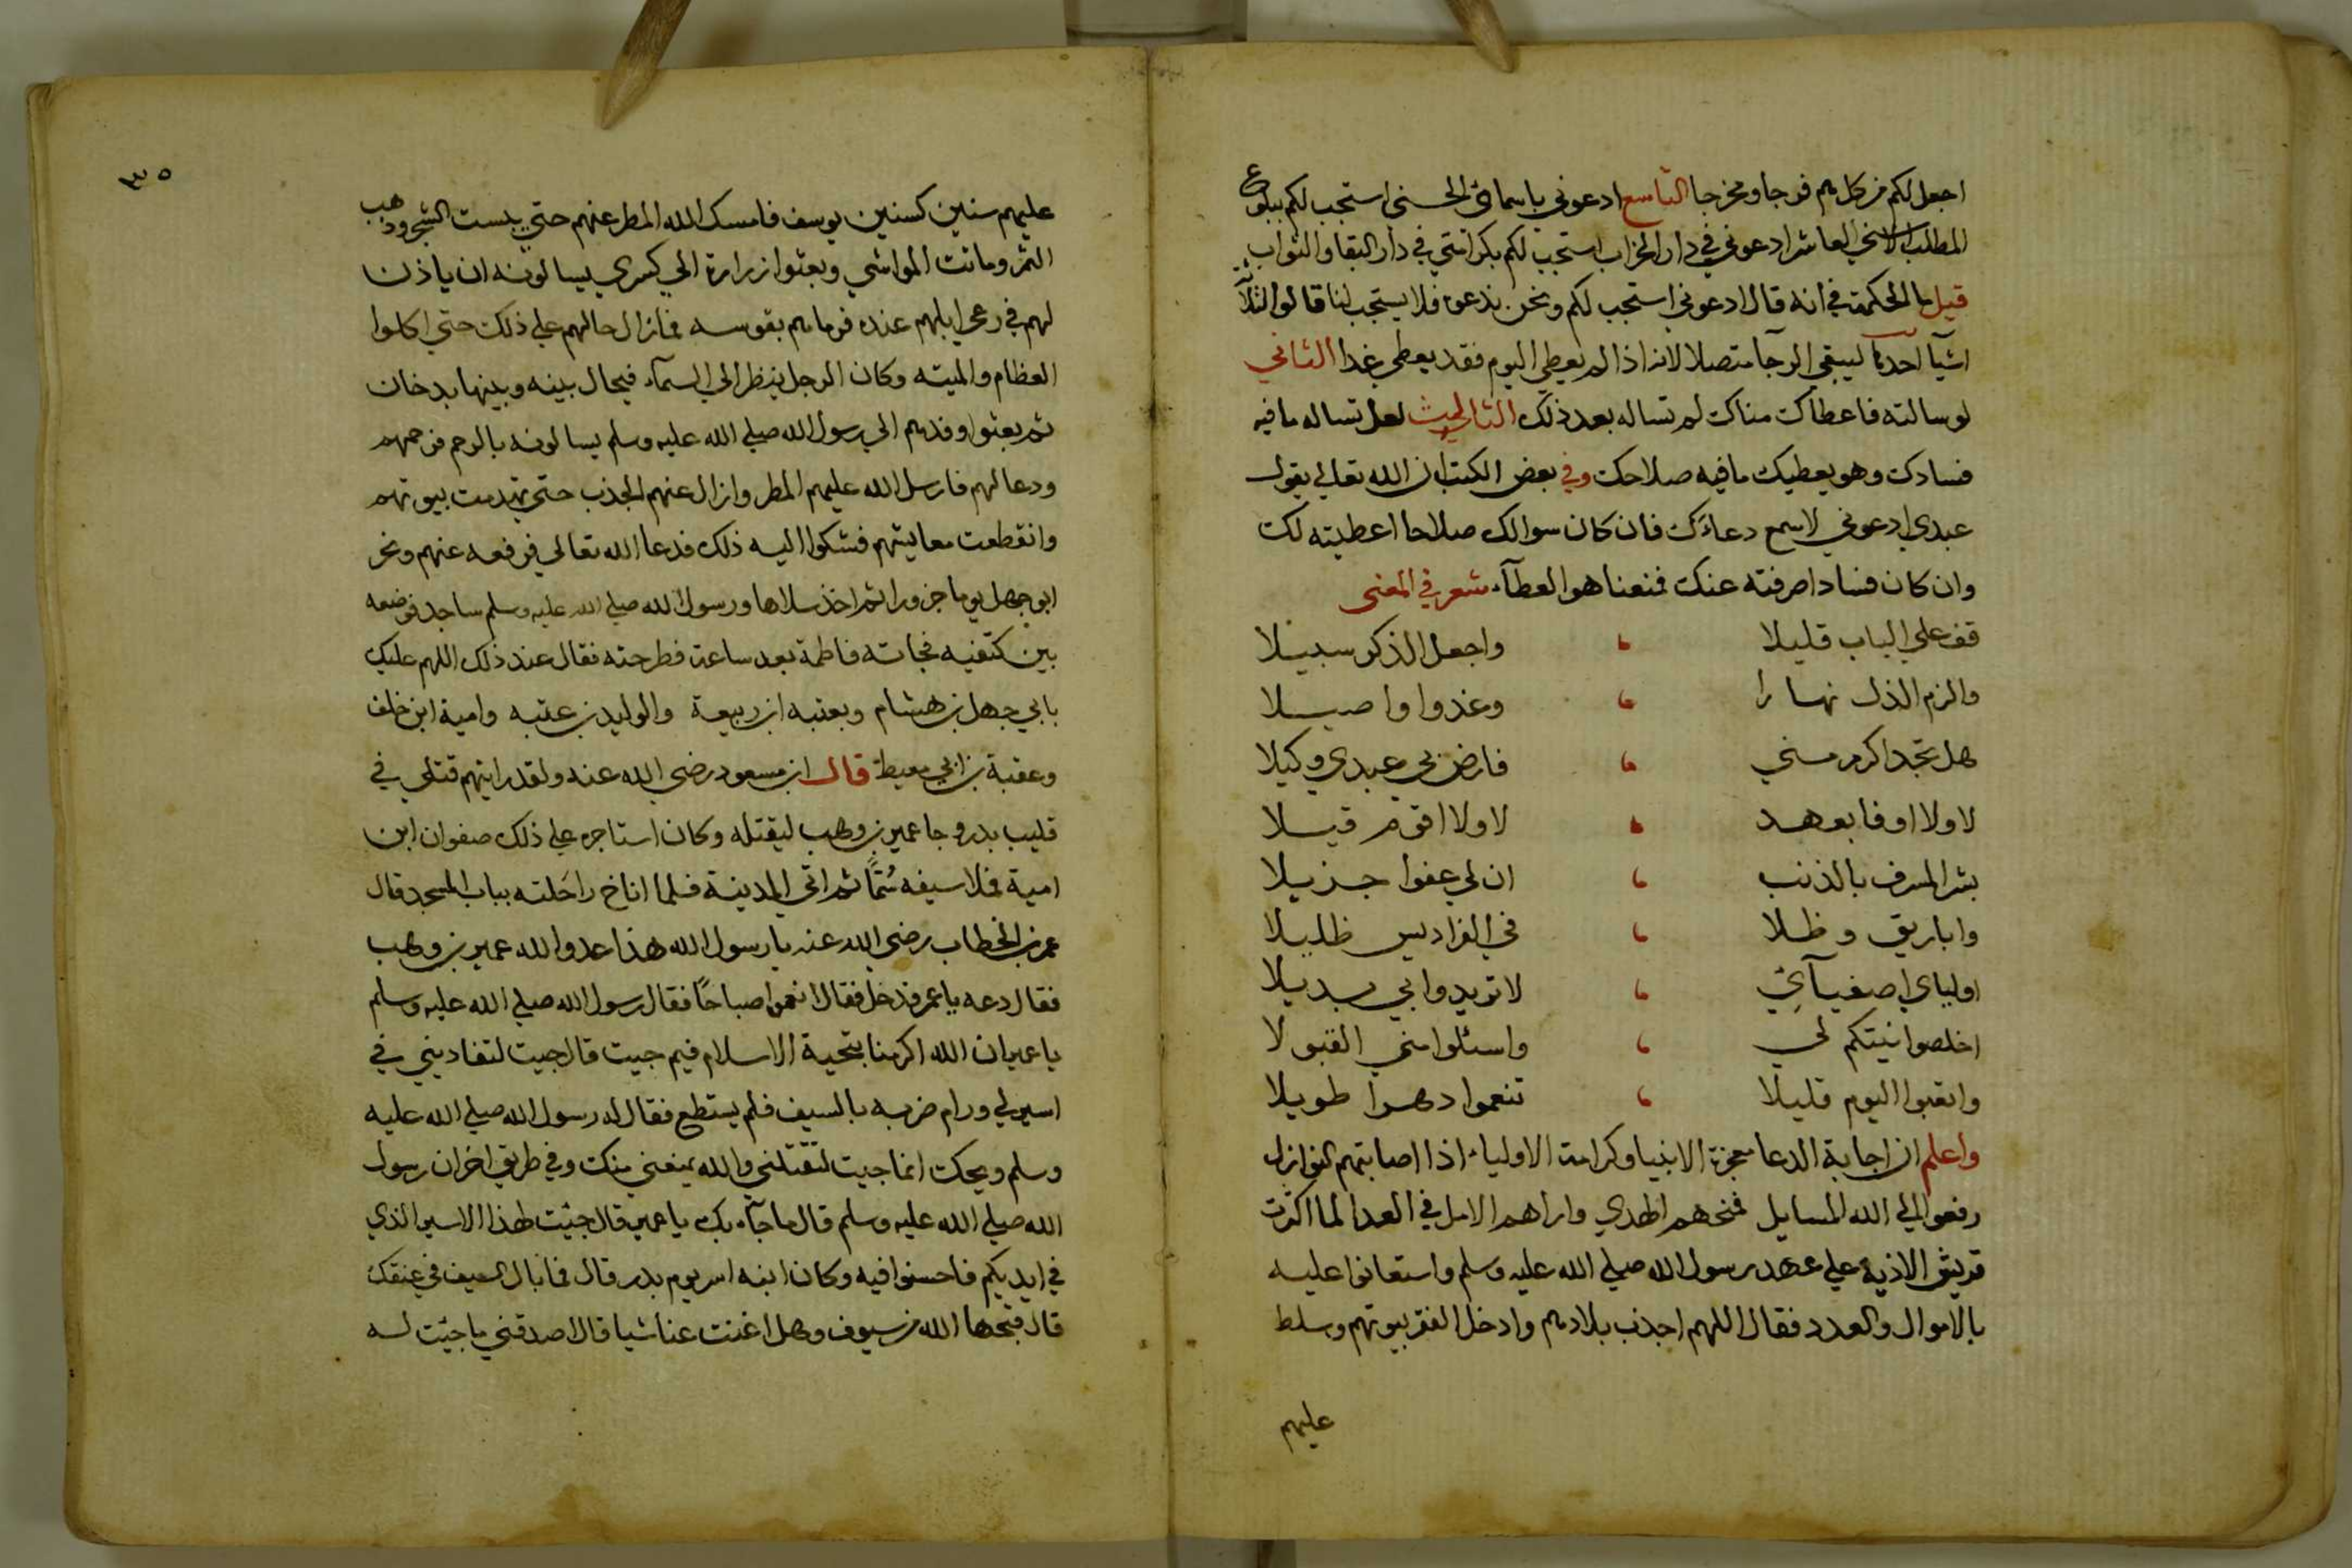 اجعل لكم من كل هم فرجا ومخرجا التاسع ادعوني باسمائي الحسنى استجب لكم ببلوغ
المطلب الاسني العاشر ادعوني في دار الخراب استجب لكم بكرامتي في دار البقا والثواب
قيل ما الحكمة في انه قال ادعوني استجب لكم ونحن ندعو فلا يستجب لنا قالوا لثلاثة
اشيآ احدها ليبقى الرجآ متصلا لانه اذا لم يعطي اليوم فقد يعطى غدا الثاني
لو سالته فاعطاك مناك لم تساله بعد ذلك الثالث لعل تساله ما فيه
فسادك وهو يعطيك ما فيه صلاحك وفي بعض الكتب ان الله تعالي يقول
عبدي ادعوني لاسمع دعاءك فان كان سوالك صلاحا اعطيته لك
وان كان فسادا صرفته عنك فمنعنا هو العطآء شعر في المعنى
قف علي الباب قليلا واجعل الذكر سبيلا
والزم الذل نهارا وغدوا واصيلا
هل تجد اكرم مني فارض بي عبدي وكيلا
لا ولا اوفا بعهد لا ولا اقوم قيلا
بشر المسرف بالذنب ان لي عفوا جزيلا
واباريق وظلا في الفراديس ظليلا
اولياي اصفيآئي لا تريدوا بي بديلا
اخلصوا نيتكم لي واسئلوا مني القبولا
واتعبوا اليوم قليلا تنعموا دهرا طويلا
واعلم ان اجابة الدعا معجزة الانبيا وكرامة الاولياء اذا اصابتهم النوازل
رفعوا الي الله المسايل فمنحهم الهدي واراهم الامل في العدا لما اكثرت
قريش الاذية علي عهد رسول الله صلي الله عليه وسلم واستعانوا عليه
بالاموال والعدد فقال اللهم اجدب بلادهم وادخل الفقر بيوتهم وسلط
عليهم
٣٥
عليهم سنين كسنين يوسف فامسك الله المطر عنهم حتي يبست الشجر وذهب
الثمر وماتت المواشي وبعثوا ابن زرارة الي كسري يسالونه ان ياذن
لهم في رعي ابلهم عنده فرماهم بقوسه فمازال حالهم علي ذلك حتي اكلوا
العظام والميته وكان الرجل ينظر الي السمآء فيحال بينه وبينها بدخان
ثم بعثوا وفدهم الي رسول الله صلي الله عليه وسلم يسالونه بالرحم فرحمهم
ودعا لهم فارسل الله عليهم المطر وازال عنهم الجدب حتي تهدمت بيوتهم
وانقطعت معايشهم فشكوا اليه ذلك فدعا الله تعالي فرفعه عنهم ونحر
ابو جهل يوما جزورا ثم اخذ سلاها ورسول الله صلي الله عليه وسلم ساجد فوضعه
بين كتفيه فجاته فاطمة بعد ساعة فطرحته فقال عند ذلك اللهم عليك
بابي جهل بن هشام وبعتبه ابن ربيعة والوليد بن عتبه وامية ابن خلف
وعقبة بن ابي معيط قال ابن مسعود رضي الله عنه ولقد رايتهم قتلي في
قليب بدر وجا عمير بن وهب ليقتله وكان استاجره علي ذلك صفوان ابن
امية فملا سيفه سُمًّا ثم اتي المدينة فلما اناخ راحلته بباب المسجد قال
عمر بن الخطاب رضي الله عنه يا رسول الله هذا عدو الله عمير بن وهب
فقال دعه يا عمر فدخل فقال انعموا صباحًا فقال رسول الله صلي الله عليه وسلم
يا عمير ان الله اكرمنا بتحية الاسلام فيم جيت قال جيت لتفاديني في
اسير لي ورام ضربه بالسيف فلم يستطع فقال له رسول الله صلي الله عليه
وسلم ويحك انما جيت لتقتلني والله يمنعني منك وفي طريق اخر ان رسول
الله صلي الله عليه وسلم قال ما جآء بك يا عمير قال جئت لهذا الاسير الذي
في ايديكم فاحسنوا فيه وكان ابنه اسر يوم بدر قال فما بال السيف في عنقك
قال قبحها الله من سيوف وهل اغنت عنا شيا قال اصدقني ما جئت له